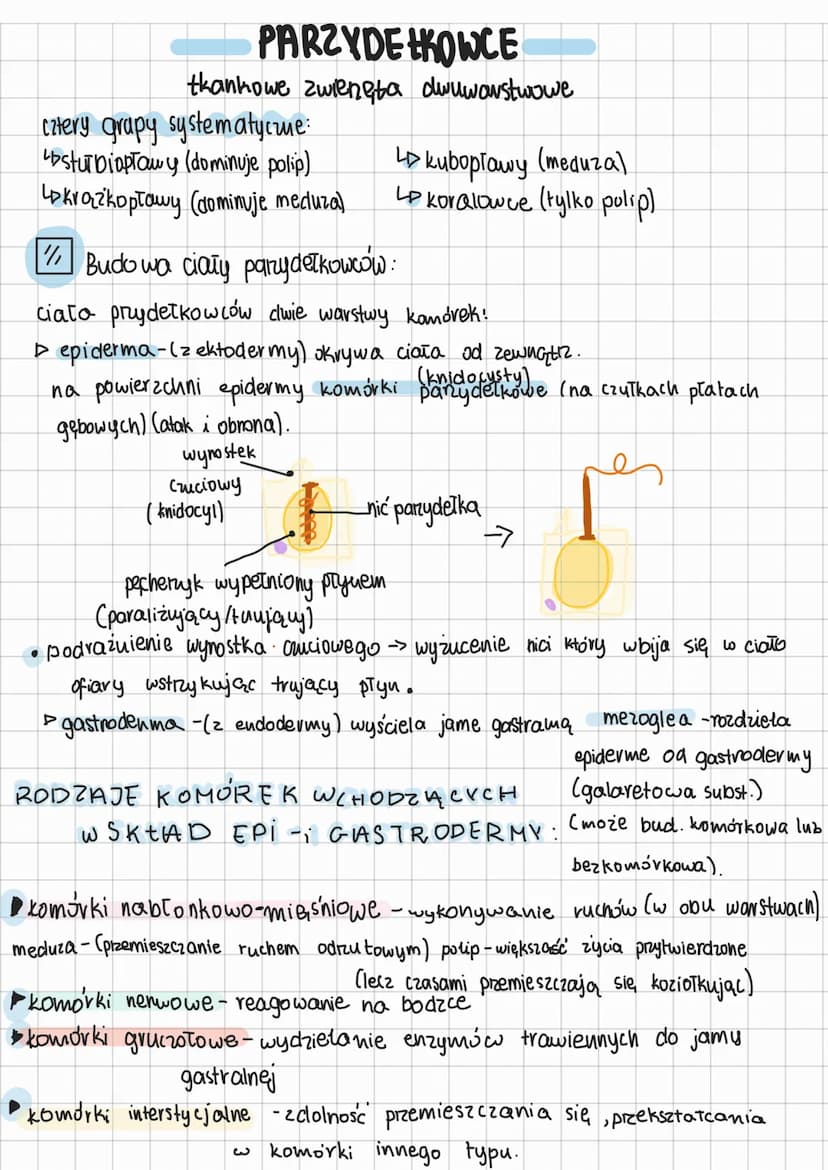 PARZYDEŁKOWCE
tkankowe zwierzęta dwuwarstwowe
cztery grupy systematyczne:
↳stułbiopławy (dominuje polip)
↳kubopławy (meduza)
↳krążkopławy (dominuje meduza)
↳koralowce (tylko polip)
Budowa ciały parzydełkowców:
ciało prydełkowców dwie warstwy komórek!
▷ epiderma-(z ektodermy) okrywa ciała od zewnątrz.
(knidocysty)
na powierzchni epidermy komórki parzydełkowe (na czułkach płatach
gębowych) (atak i obrona).
wyrostek
czuciowy
(knidocyl)
nić parzydełka
→
pęcherzyk wypełniony płynem
(paraliżujący/trujący)
• podrażnienie wyrostka czuciowego → wyżucenie nici który wbija się w ciało
ofiary wstrzykując trujący płyn.
▷ gastroderma -(z endodermy) wyściela jame gastralną
mezoglea -rozdziela
epiderme od gastrodermy
(galaretowa subst.)
(może bud. komórkowa lub
bezkomórkowa).
RODZAJE KOMÓREK WCHODZĄCYCH
W SKŁAD EPI -i GASTRODERMY:
▶komórki nabłonkowo-mięśniowe - wykonywanie ruchów (w obu warstwach)
meduza - (przemieszczanie ruchem odrzutowym) polip - większość życia przytwierdzone
(lecz czasami przemieszczają się koziołkując)
▶komórki nerwowe - reagowanie na bodzce
▶komórki gruczołowe - wydzielanie enzymów trawiennych do jamy
gastralnej
▶komórki interstycjalne - zdolność przemieszczania się, przekształcania
w komórki innego typu.